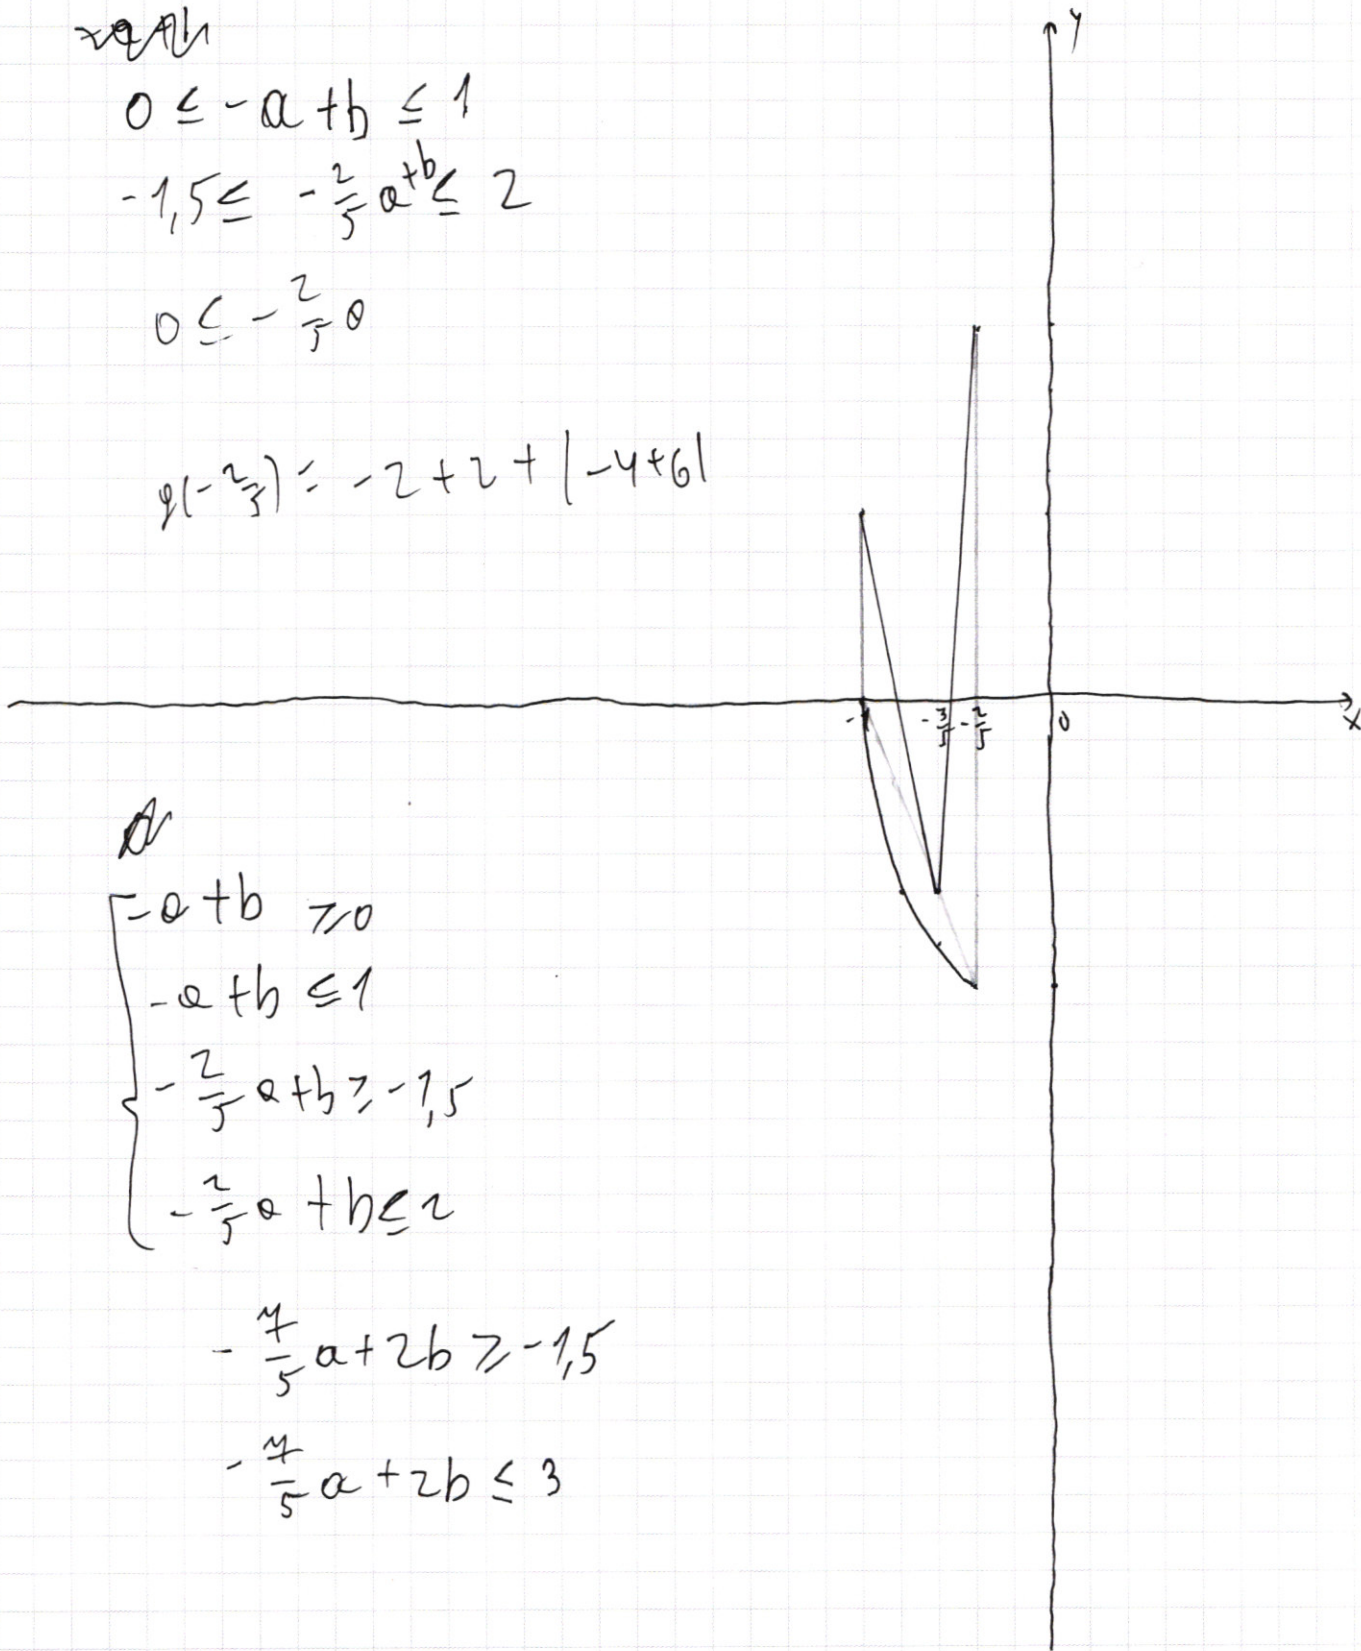 0 ≤ -a + b ≤ 1
-1,5 ≤ -2/5 a + b ≤ 2
0 ≤ -2/5 a
g(-2/5) = -2 + 2 + |-4+6|
y
-1 -3/5 -2/5 0 x
-a + b ≥ 0
-a + b ≤ 1
-2/5 a + b ≥ -1,5
-2/5 a + b ≤ 2
-7/5 a + 2b ≥ -1,5
-7/5 a + 2b ≤ 3